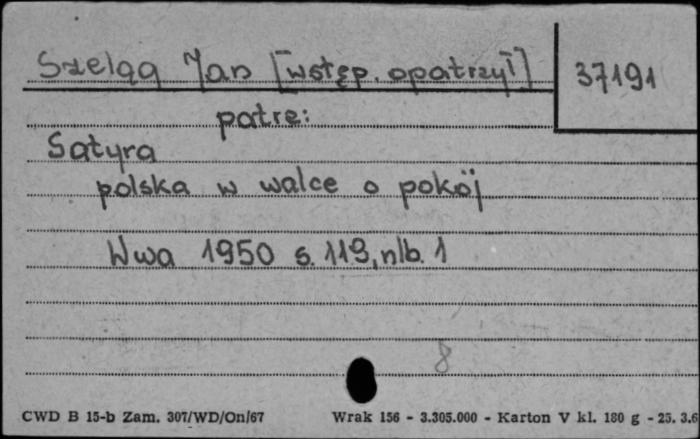 Szeląg Jan [wstęp. opatrzył] 37191
patrz:
Satyra
polska w walce o pokój
Wwa 1950 s. 119, nlb. 1
8
CWD B 15-b Zam. 307/WD/On/67 Wrak 156 - 3.305.000 - Karton V kl. 180 g - 25. 3.6